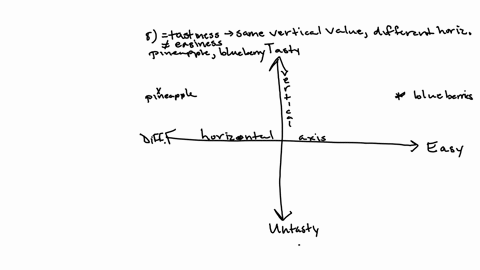 8) = tastiness → same vertical value, different horiz.
≠ easiness
pineapple, blueberry
Tasty
vertical
pineapple
* blueberries
Diff. horizontal axis Easy
Untasty